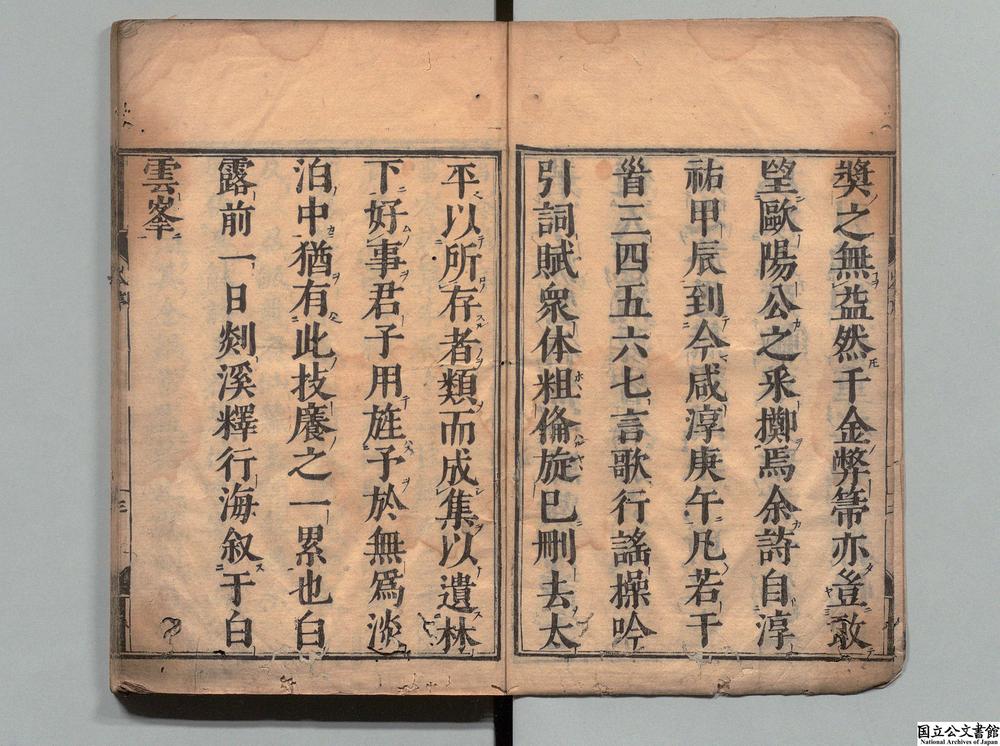 奬之無益然千金弊箒亦豈敢
望歐陽公之釆擲焉余詩自淳
祐甲辰到今咸淳庚午凡若干
首三四五六七言歌行謠操吟
引詞賦衆体粗偹旋已刪去太
平以所存者類而成集以遺林
下好事君子用旌予於無爲淡
泊中猶有此技癢之一累也白
露前一日剡溪釋行海叙于白
雲峯
国立公文書館
National Archives of Japan